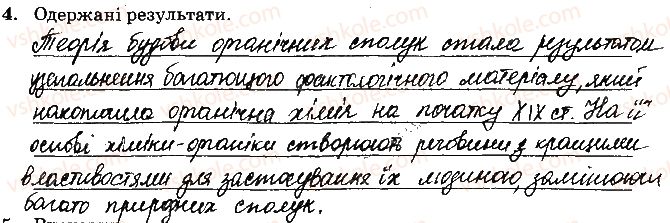 4. Одержані результати.
Теорія будови органічних сполук стала результатом
узагальнення багатющого фактологічного матеріалу, який
накопичила органічна хімія на початку XIX ст. На її
основі хіміки-органіки створюють речовини з кращими
властивостями для застосування їх людиною, заміщаючи
багато природних сполук.